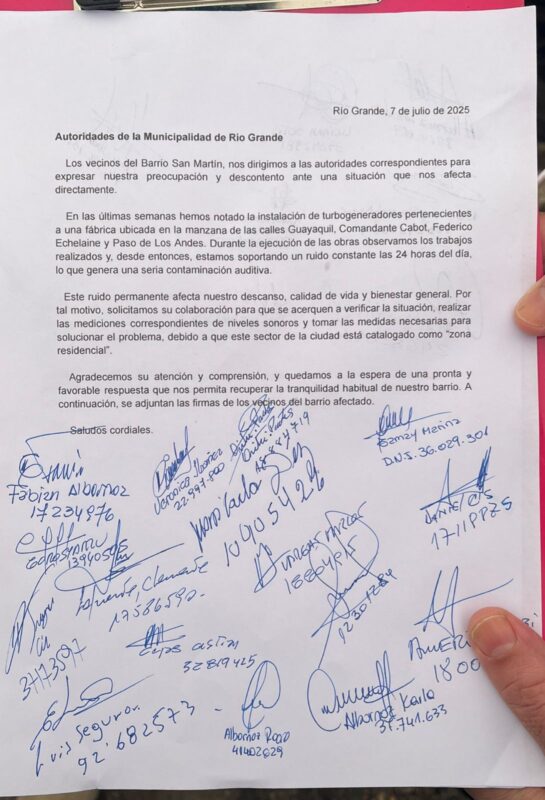 Río Grande, 7 de julio de 2025
Autoridades de la Municipalidad de Río Grande
Los vecinos del Barrio San Martín, nos dirigimos a las autoridades correspondientes para
expresar nuestra preocupación y descontento ante una situación que nos afecta
directamente.
En las últimas semanas hemos notado la instalación de turbogeneradores pertenecientes
a una fábrica ubicada en la manzana de las calles Guayaquil, Comandante Cabot, Federico
Echelaine y Paso de Los Andes. Durante la ejecución de las obras observamos los trabajos
realizados y, desde entonces, estamos soportando un ruido constante las 24 horas del día,
lo que genera una seria contaminación auditiva.
Este ruido permanente afecta nuestro descanso, calidad de vida y bienestar general. Por
tal motivo, solicitamos su colaboración para que se acerquen a verificar la situación, realizar
las mediciones correspondientes de niveles sonoros y tomar las medidas necesarias para
solucionar el problema, debido a que este sector de la ciudad está catalogado como “zona
residencial”.
Agradecemos su atención y comprensión, y quedamos a la espera de una pronta y
favorable respuesta que nos permita recuperar la tranquilidad habitual de nuestro barrio. A
continuación, se adjuntan las firmas de los vecinos del barrio afectado.
Saludos cordiales.
Fabian Albornoz
17234976
Veronica
22.997.800
D.N.I. 36.029.301
Clemente
17586590
32819425
Luis Segura
92.682573
Albornoz Rocio
41402629
Albornoz Karla
31.741.633